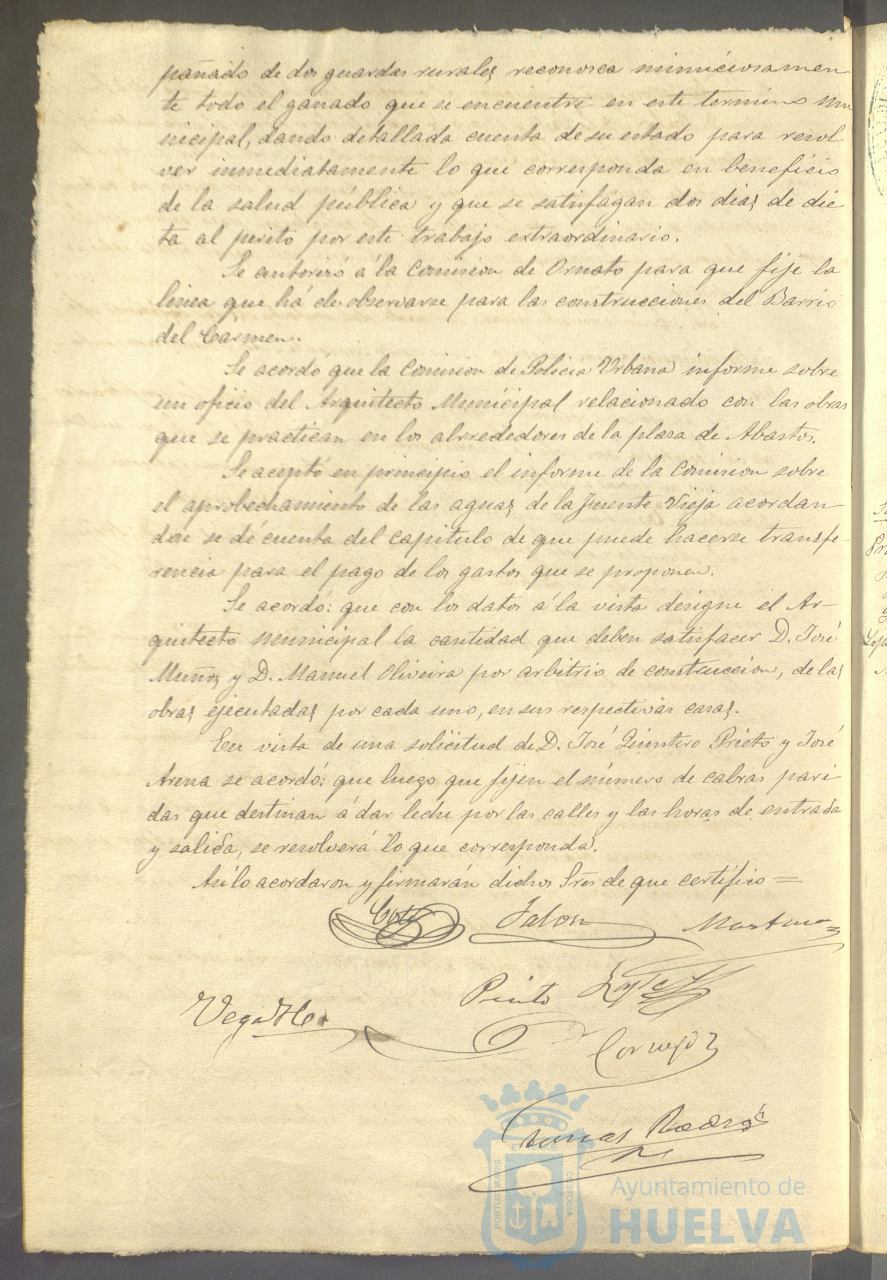 pañado de dos guardas rurales reconosca minuciosamen
te todo el ganado que se encuentre en este termino mu
nicipal, dando detallada cuenta de su estado para resol
ver inmediatamente lo que corresponda en beneficio
de la salud pública y que se satisfagan dos dias de die
ta al perito por este trabajo extraordinario.
Se autorizó á la Comision de Ornato para que fije la
linea que há de observarse para las construcciones del Barrio
del Carmen.
Se acordó que la Comision de Policia Urbana informe sobre
un oficio del Arquitecto Municipal relacionado con las obras
que se practican en los alrededores de la plaza de Abastos.
Se aceptó en principio el informe de la Comision sobre
el aprobechamiento de las aguas de la Fuente Vieja acordan
dose se dé cuenta del capitulo de que puede hacerse transfe-
rencia para el pago de los gastos que se proponen.
Se acordó: que con los datos á la vista designe el Ar-
quitecto municipal la cantidad que deben satisfacer D. José
Muñoz y D. Manuel Oliveira por arbitrio de construccion, de las
obras ejecutadas por cada uno, en sus respectivas casas.
En vista de una solicitud de D. José Quintero Prieto y José
Arena se acordó: que luego que fijen el número de cabras pari
das que destinan á dar leche por las calles y las horas de entrada
y salida, se resolverá lo que corresponda.
Asi lo acordaron y firmarán dichos Sres de que certifico =
Jalon
Martinez
Pinto
Vega
Cornejo
Ayuntamiento de
HUELVA
PORTUS MARIS
ET TERRE
CUSTODIA